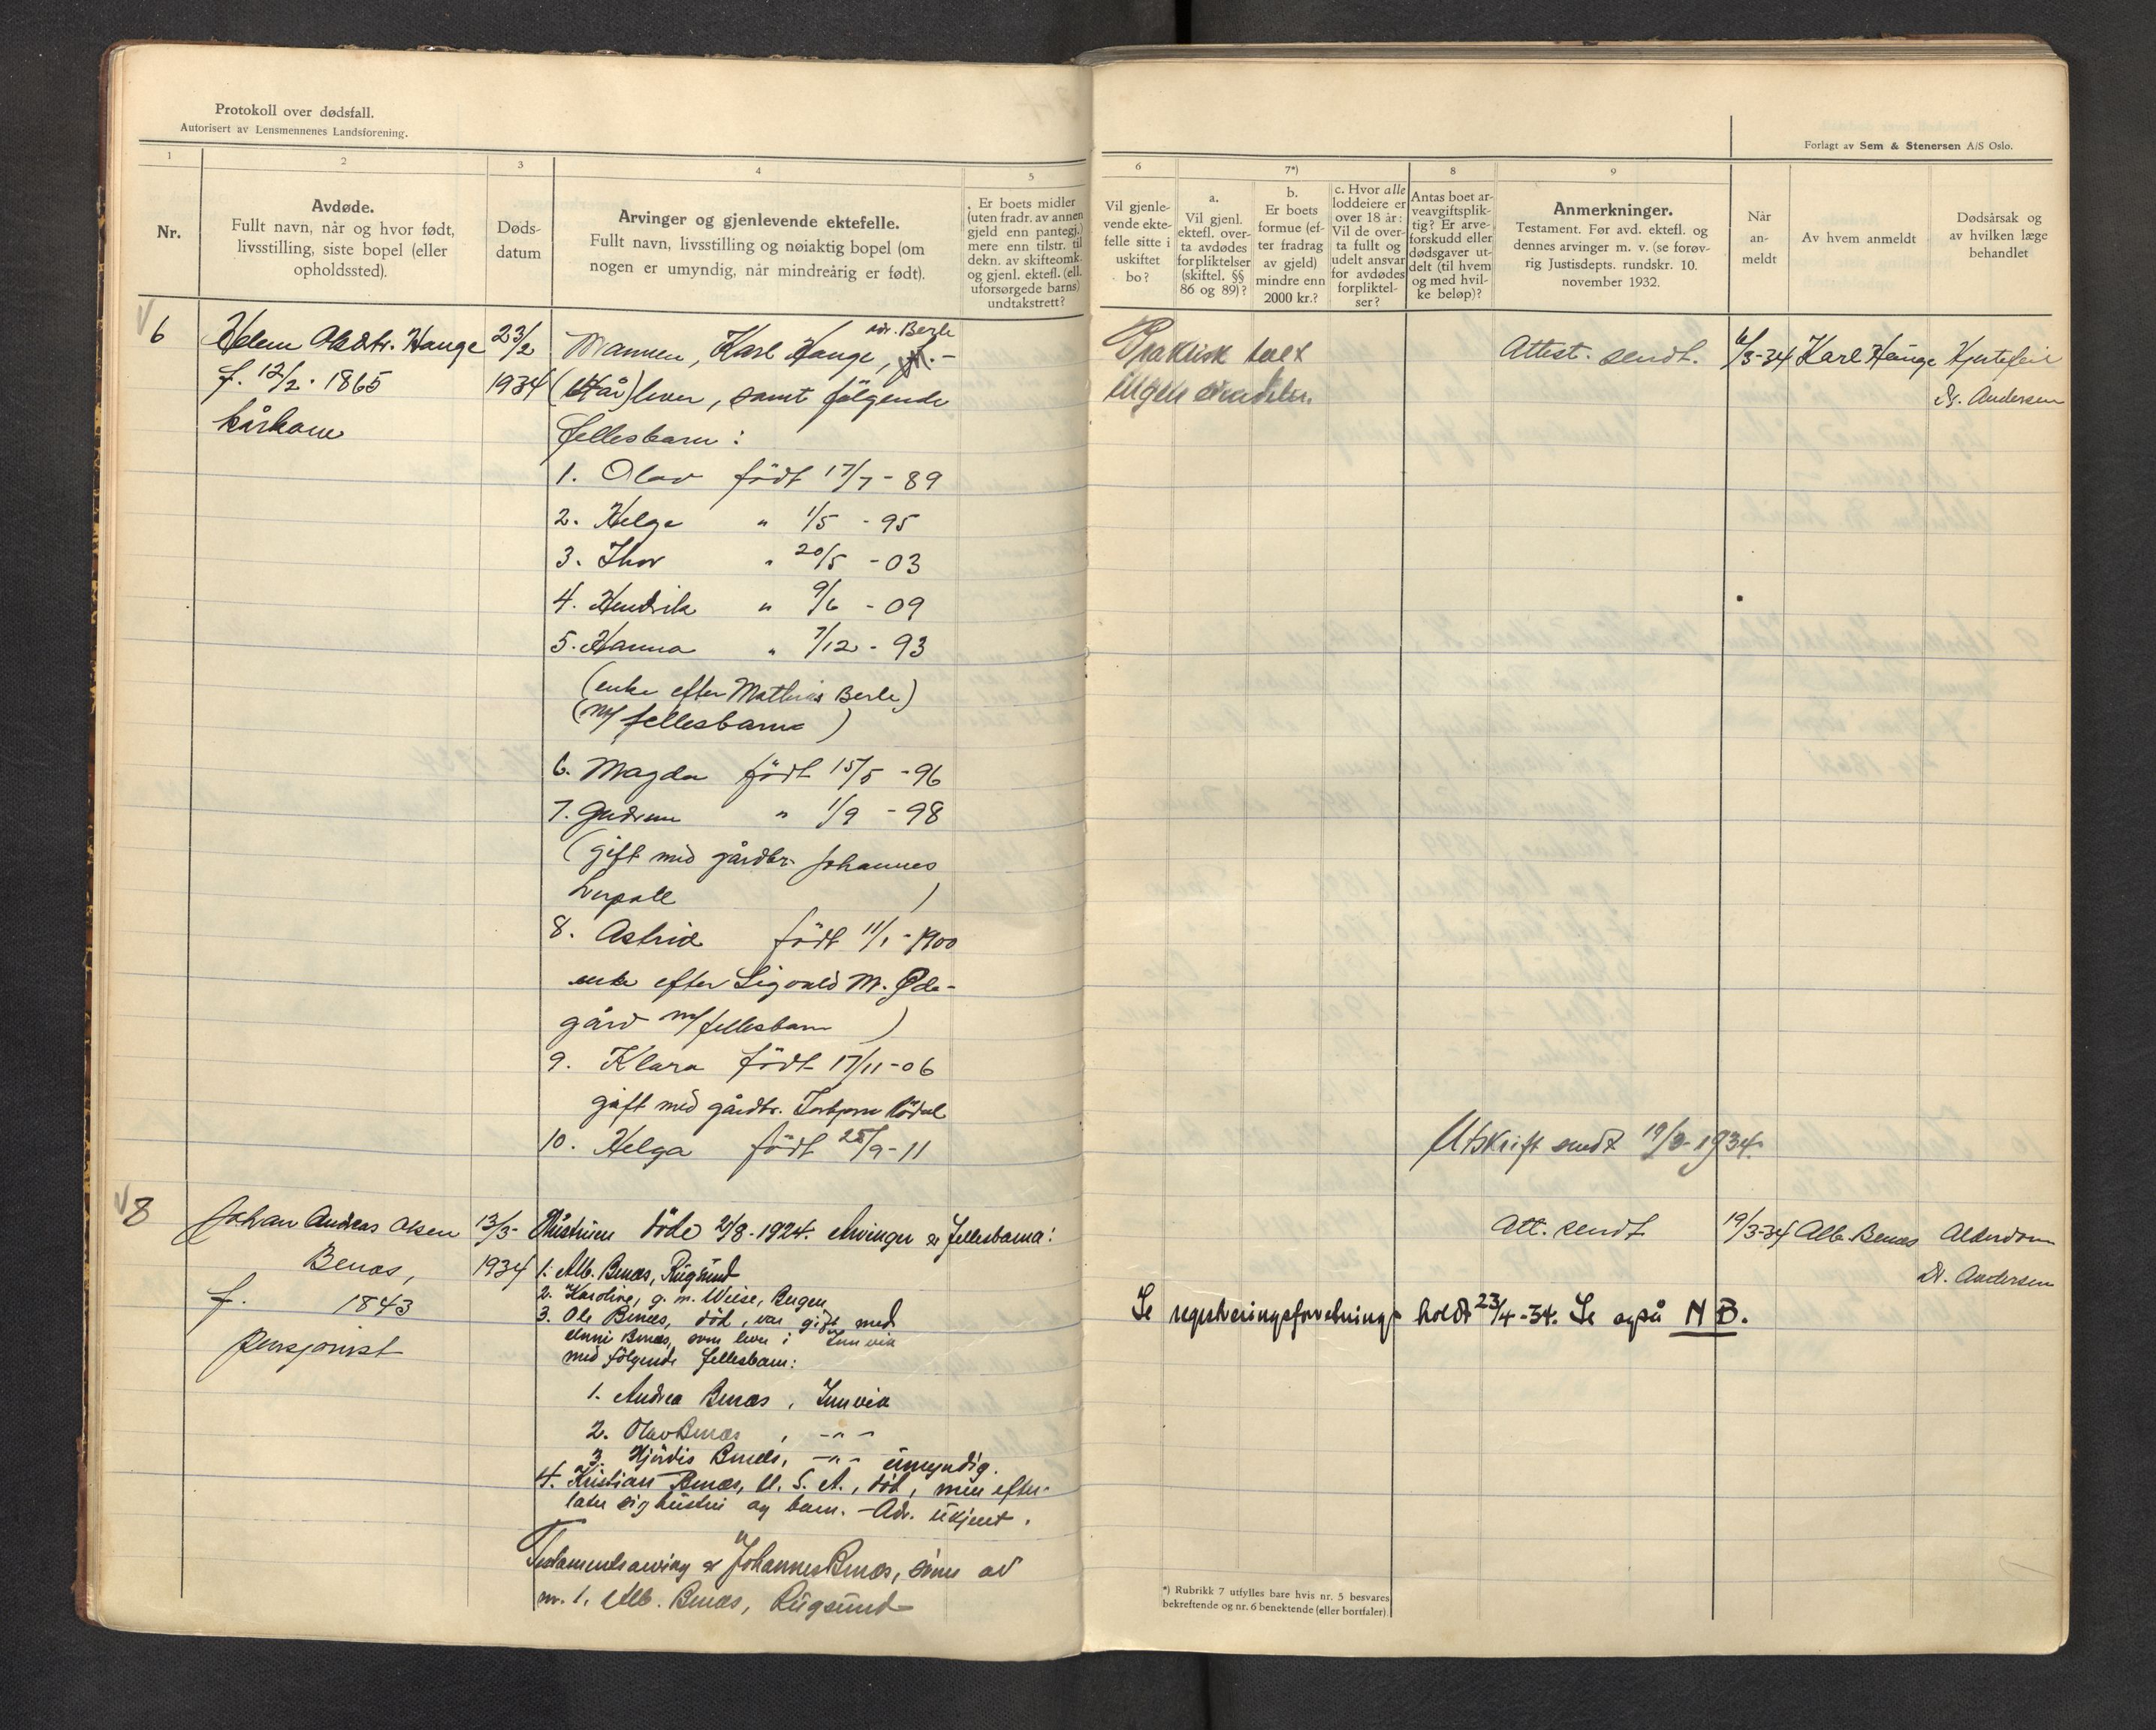 Protokoll over dødsfall.
Autorisert av Lensmennenes Landsforening.
Forlagt av Sem & Stenersen A/S Oslo.
1
2
3
4
5
6
7*)
8
9
Nr.
Avdøde.
Fullt navn, når og hvor født,
livsstilling, siste bopel (eller
opholdssted).
Døds-
datum
Arvinger og gjenlevende ektefelle.
Fullt navn, livsstilling og nøiaktig bopel (om
nogen er umyndig, når mindreårig er født).
Er boets midler
(uten fradr. av annen
gjeld enn pantegj.)
mere enn tilstr. til
dekn. av skifteomk.
og gjenl. ektefl. (ell.
uforsørgede barns)
undtakstrett?
Vil gjenle-
vende ekte-
felle sitte i
uskiftet
bo?
a.
Vil gjenl.
ektefl. over-
ta avdødes
forpliktelser
(skiftel. §§
86 og 89)?
b.
Er boets
formue (ef-
ter fradrag
av gjeld)
mindre enn
2000 kr.?
c. Hvor alle
loddeiere er
over 18 år:
Vil de over-
ta fullt og
udelt ansvar
for avdødes
forpliktel-
ser?
Antas boet ar-
veavgiftsplik-
tig? Er arve-
forskudd eller
dødsgaver ut-
delt (til hvem
og med hvil-
ke beløp)?
Anmerkninger.
Testament. Før avd. ektefl. og
dennes arvinger m. v. (se forøv-
rig Justisdepts. rundskr. 10.
november 1932.
Når
an-
meldt
Av hvem anmeldt
Dødsårsak og
av hvilken læge
behandlet
6
Helene Hauge
f. 12/2. 1865
kårkone
23/2
1934
adr. Berle
Mannen, Karl Hauge,
(kår) lever, samt følgende
fellesbarn:
1. Olav født 17/7 - 89
2. Helge " 1/5 - 95
3. Thor " 20/5 - 03
4. Hendrik " 9/6 - 09
5. Hanna " 7/12 - 93
(enke efter Mathias Berle)
(m/ fellesbarn)
6. Magda født 15/5 - 96
7. Gudrun " 1/9 - 98
(gift med gårdbr. Johannes
)
8. Astrid født 11/1 - 1900
enke efter Sigvald M. Øde-
gård m/ fellesbarn )
9. Klara født 17/11 - 06
gift med gårdbr. Torbjørn
10. Helga født 25/9 - 11
Praktisk talt
ingen eiendeler.
Attest. sendt.
6/3-34
Karl Hauge
Hjertefeil
Dr. Andersen
Utskrift sendt 19/3-1934.
8
Johan Andreas Olsen
Benæs,
f. 1843
pensjonist
13/3-
1934
Hustruen døde 2/8-1924. Arvinger er fellesbarna:
1. Alb. Benæs, Rugsund
2. Karoline, g. m. Weise, Bergen
3. Ole Benæs, død, var gift med
Anne Benæs, som lever i Innvik
med følgende fellesbarn:
1. Andrea Benæs, Innvik
2. Olav Benæs, -"-
3. Hjørdis Benæs, -"- umyndig.
4. Kristian Benæs, U. S. A., død, men efter-
later sig hustru og barn. - Adr. ukjent.
Testamentsarving er Johannes Benæs, sønn av
nr. 1. Alb. Benæs, Rugsund
Att. sendt
19/3-34
Alb. Benæs
Alderdom
Dr. Andersen
Se registreringsforretning holdt 23/4-34. Se også NB.
*) Rubrikk 7 utfylles bare hvis nr. 5 besvares
bekreftende og nr. 6 benektende (eller bortfaler).